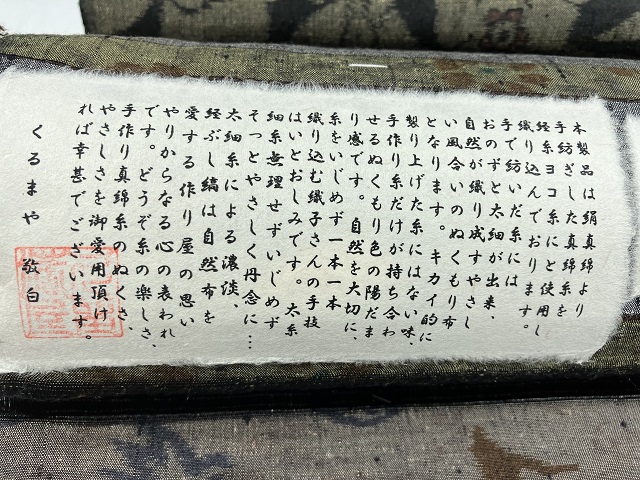 本製品は絹真綿より
手紡ぎした真綿糸を
経糸ヨコ糸にと使用し
織り込んでおります。
手で紡いだ糸には
おのずと太細が出来、
自然が織り成すやさし
い風合いのぬくもり布
となります。キカイ的に
製り上げた糸にはない味、
手作り糸だけが持ち合わ
せるぬくもり色の陽だま
り感です。自然を大切に、
糸をいじめず一本一本
織り込む織子さんの手技
はいとおしみです。太糸
細糸無理せずいじめず
そっとやさしく丹念に…
太細糸による濃淡、
経ぶし縞は自然布を
愛する作り屋の思い
やりからなる心の表われ
です。どうぞ糸の楽しさ、
手作り真綿糸のぬくさ、
やさしさを御愛用頂け
れば幸甚でございます。
くるまや 敬白